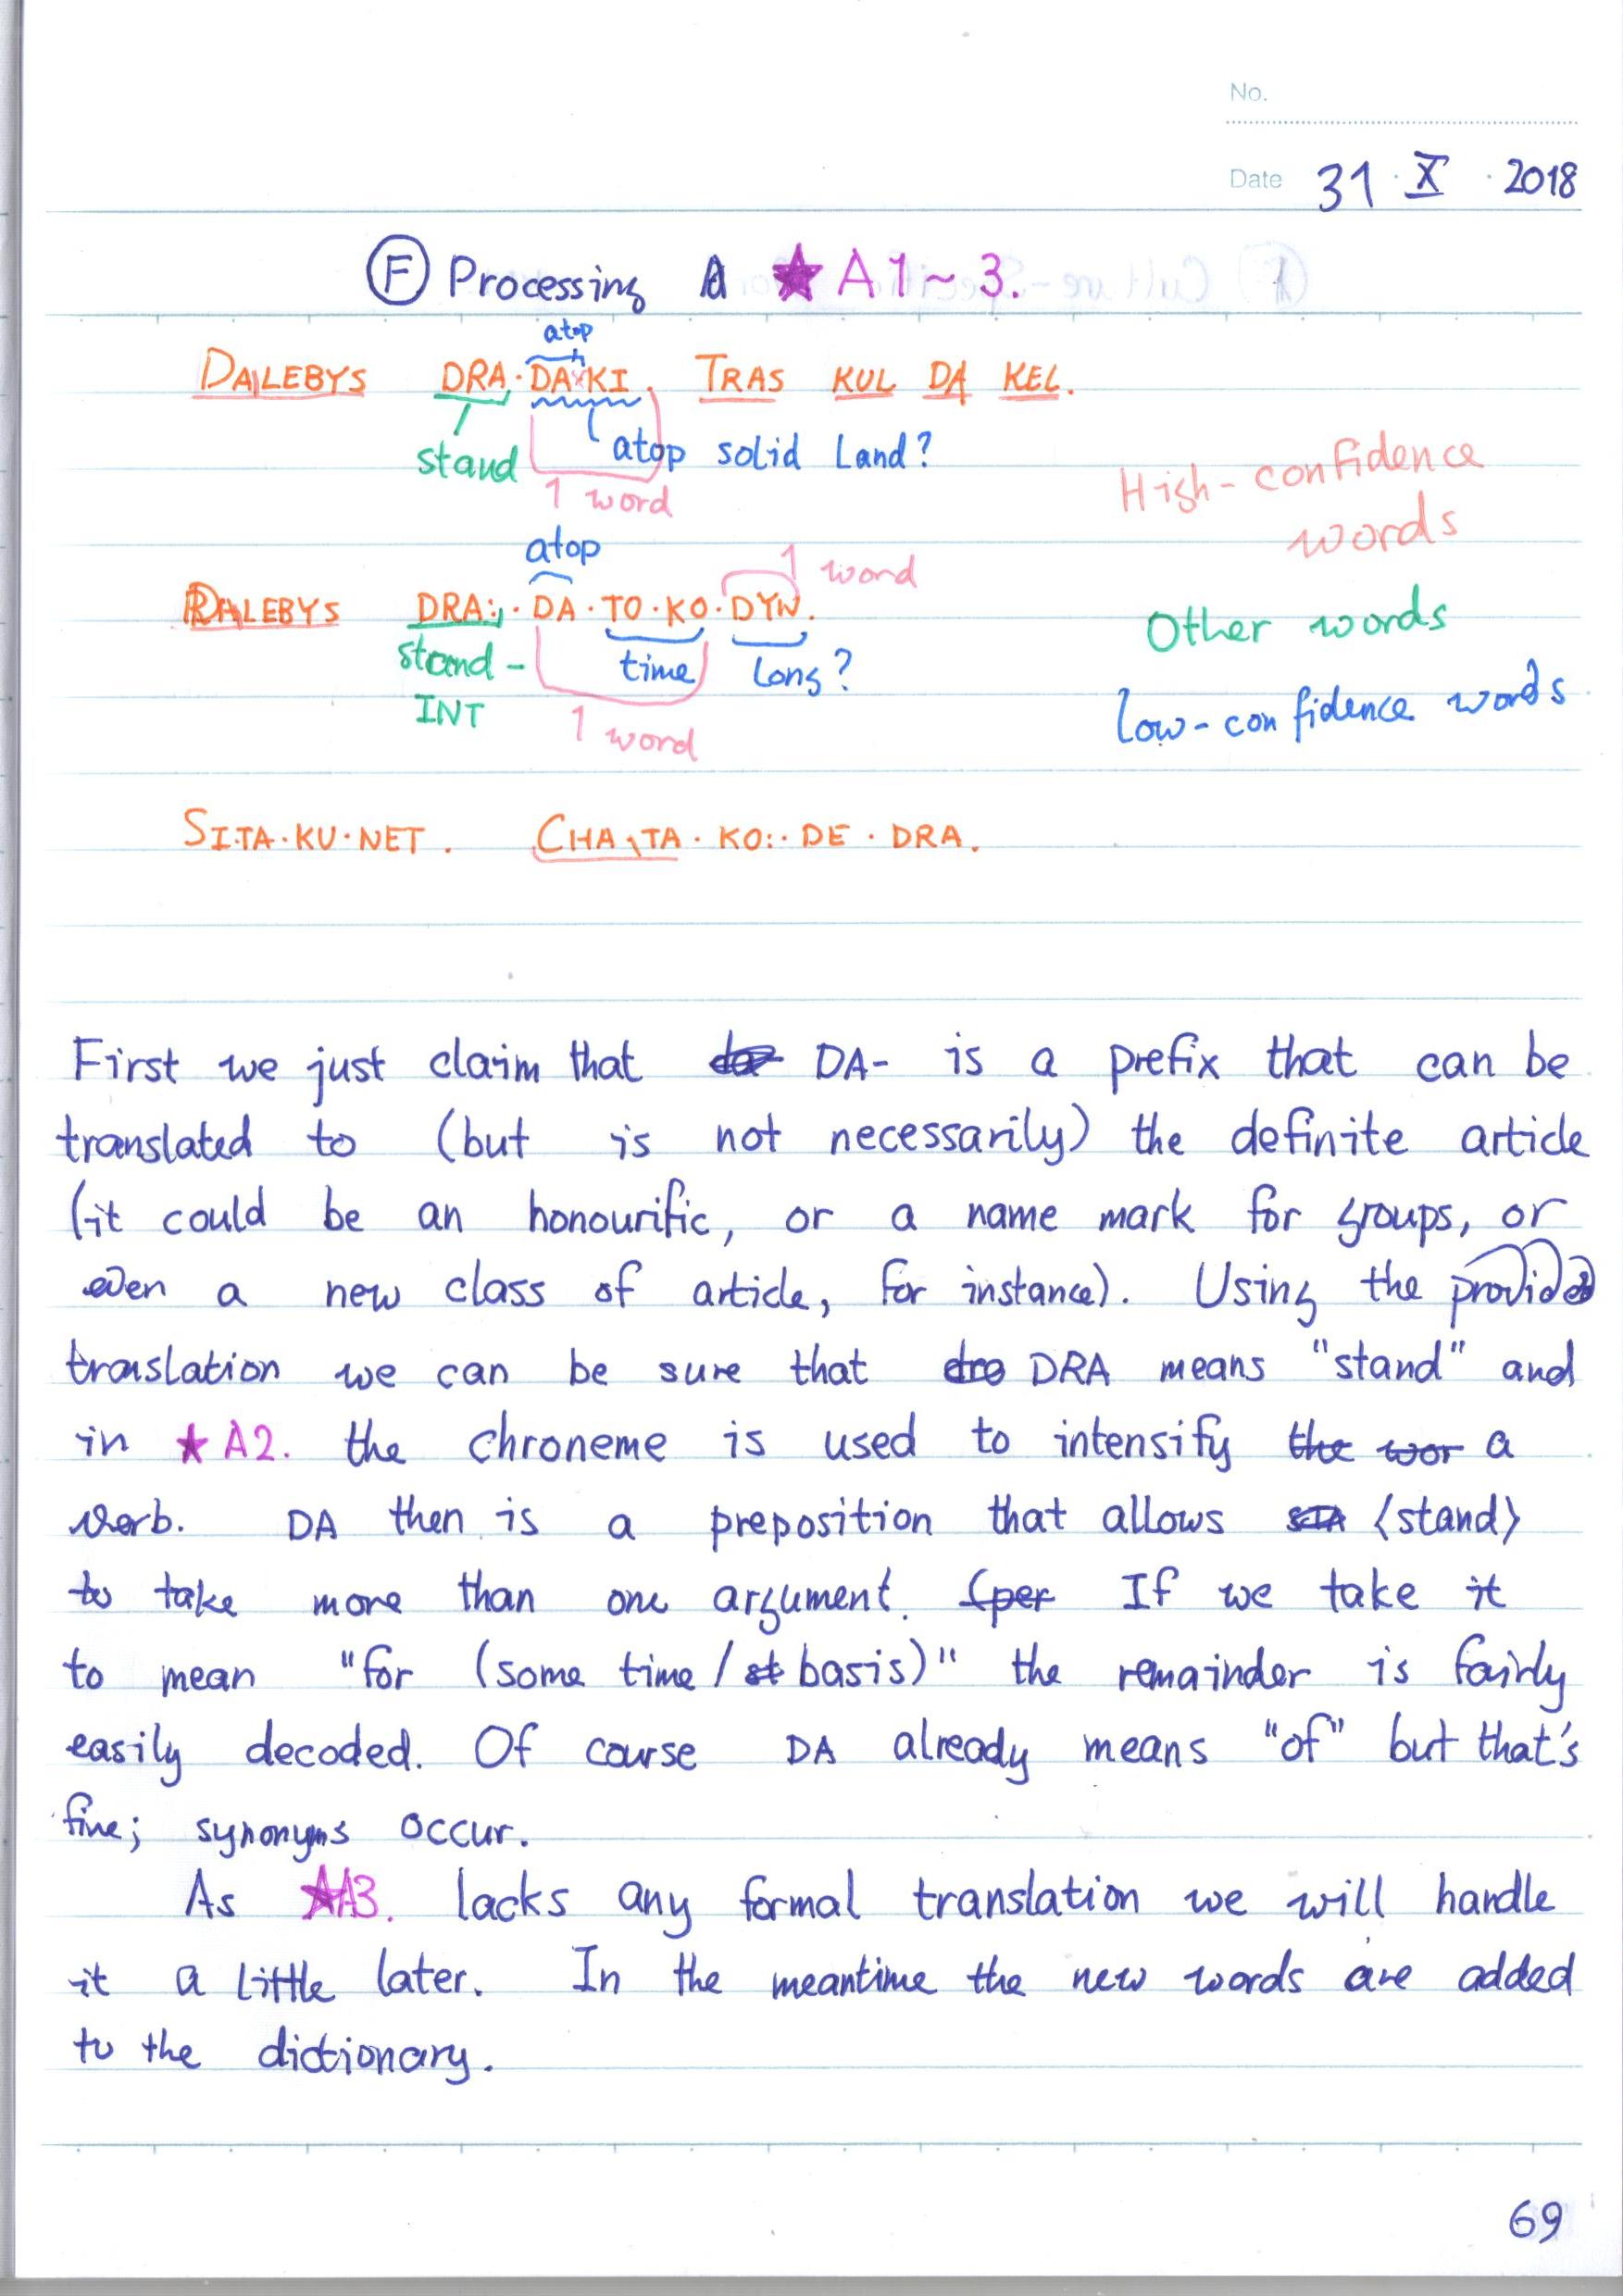 No.
Date 31 · X · 2018
Ⓕ Processing ★ A1~3.
atop
DALEBYS DRA·DA·KI. TRAS KUL DA KEL.
stand atop solid land?
1 word
High-confidence
words
atop 1 word
DALEBYS DRA:·DA·TO·KO·DYN.
Other words
stand- time long?
INT 1 word
low-confidence words
SI.TA·KU·NET. CHA\TA·KO:·DE·DRA.
First we just claim that DA- is a prefix that can be
translated to (but is not necessarily) the definite article
(it could be an honourific, or a name mark for groups, or
even a new class of article, for instance). Using the provided
translation we can be sure that DRA means "stand" and
in ★A2. the chroneme is used to intensify a
verb. DA then is a preposition that allows ⟨stand⟩
to take more than one argument. If we take it
to mean "for (some time / basis)" the remainder is fairly
easily decoded. Of course DA already means "of" but that's
fine; synonyms occur.
As ★A3. lacks any formal translation we will handle
it a little later. In the meantime the new words are added
to the dictionary.
69